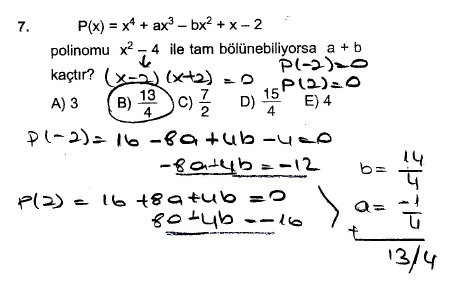 7. P(x) = x⁴ + ax³ – bx² + x – 2
polinomu x² – 4 ile tam bölünebiliyorsa a + b
kaçtır? (x-2)(x+2) = 0 P(-2)=0
P(2)=0
A) 3 B) 13/4 C) 7/2 D) 15/4 E) 4
P(-2) = 16 -8a +4b -4=0
-8a+4b = -12
P(2) = 16 +8a+4b =0
8a+4b = -16
b= 14/4
a= -1/4
+
13/4